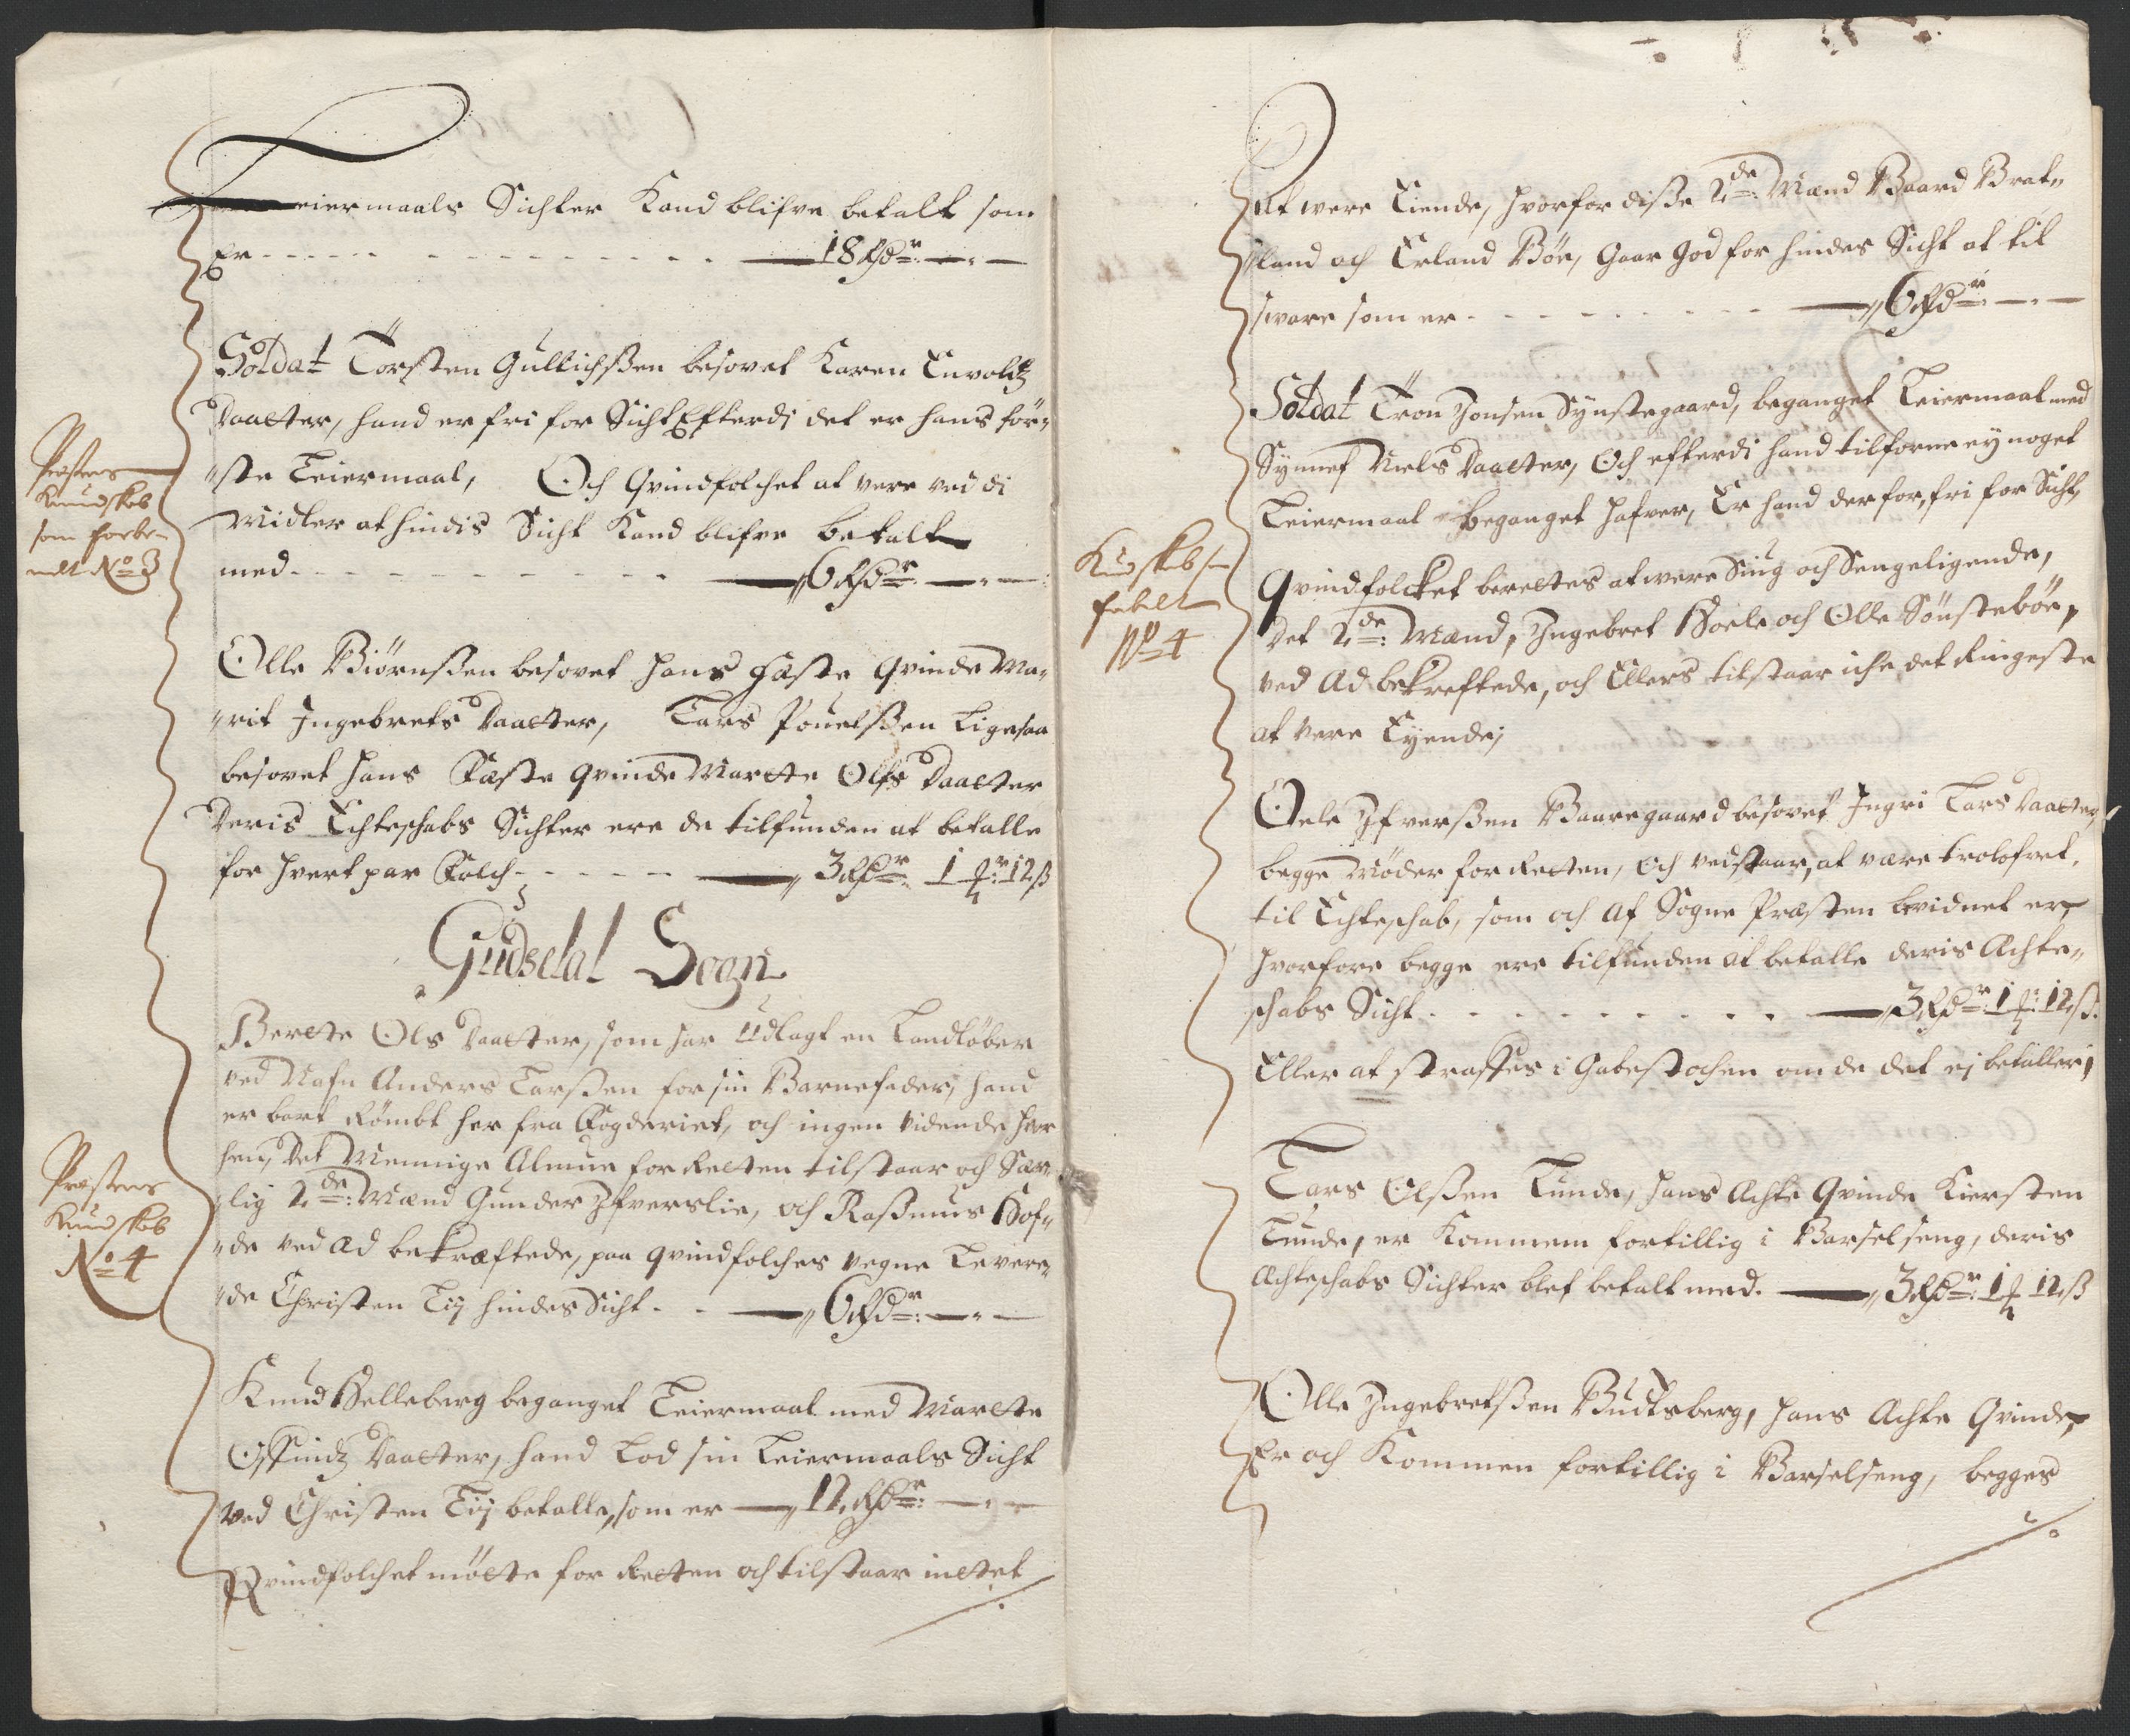 Leiermaals Sichter Kand blifve betalt som
Er - - - - - 18 Rdr: — " —
Soldat Torsten Gullichsßen besovet Karen Envoldtz
Daatter, hand er fri for Sicht Efterdi det er hans för„
„ste Leiermaal, Och Qvindfolchet at vere ved di
Midler at hindis Sicht Kand blifve betalt
med - - - - - „ 6 Rdr: — " —
Præstens
Kundskab
som forbe-
melt No 3
Olle Biörnsßen besovet hans Fæste Qvinde Ma„
„rit Ingebrets Daatter, Lars Pouelsßen Ligesaa
besovet hans Fæste Qvinde Marte Olfs Daatter
Deris Echteschabs Sichter ere de tilfunden at betalle
for hvert par Folch - - - - „ 3 Rdr: 1 ort: 12 ß
Gudsdal Sogn
Berte Ols Daatter, som har udlagt en Landløber
ved Nafn Anders Larsßen for sin Barnefader, hand
er bort Römbt her fra Fogderiet, och ingen vidende hvor
hen, Det Menige Almue for Retten tilstaar och Sær„
„lig 2de: Mænd Gunder Ifverslie, och Rasmus Hof„
„de ved Æd bekræftede, paa qvindfolches vegne Levere„
„de Christen Lij hindes Sicht - - „ 6 Rdr: — " —
Præstens
Kundskab
No 4
Knud Helleberg beganget Leiermaal med Marte
Østindz Daatter, hand Lod sin Leiermaals Sicht
ved Christen Lij betalle, som er — „ 12 Rdr: — " —
Qvindfolchet mötte for Retten och tilstaar intet
At were Eiende, hvorfor disße 2de: Mænd Baard Brat„
„land och Erland Böe, Gaar god for hindes Sicht at til
svare som er - - - - - „ 6 Rdr: — " —
Soldat Tron Jonsen Synstegaard, beganget Leiermaal med
Synnef Niels Daatter, Och efterdi hand tilforne ey noget
Leiermaal Beganget hafver, Er hand derfor, fri for Sicht,
Qvindfolcket berettes at were Siug och Sengeligende,
Det 2de: Mænd, Ingebret Hoele och Olle Sönsteböe,
ved Æd bekreftede, och Ellers tilstaar iche det Ringeste
at vere Eyende;
Kundskab
No 4
Oele Ifversßen Baaregaard besovet Ingri Lars Daatter,
begge Möder for Retten, Och vedstaar, at være trolofvet,
til Echteschab, som och af Sogne Præsten bevidnet er,
hvorfore begge ere tilfunden at betalle deris Achte„
schabs Sicht - - - - - „ 3 Rdr: 1 ort: 12 ß.
Eller at straffes i Gabestochen om de det ej betaller;
Lars Olsßen Lunde, hans Achte Qvinde Kiersten
Lunde, er Kommen fortillig i Barselseng, deris
Achteschabs Sichter blef betalt med. — „ 3 Rdr: 1 ort 12 ß
Olle Ingebretsßen Budtsberg, hans Achte Qvinde,
Er och Kommen fortillig i Barselseng, begges